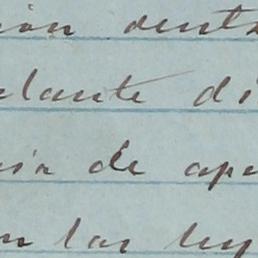 ion dent
elante di
de apa
en las ley